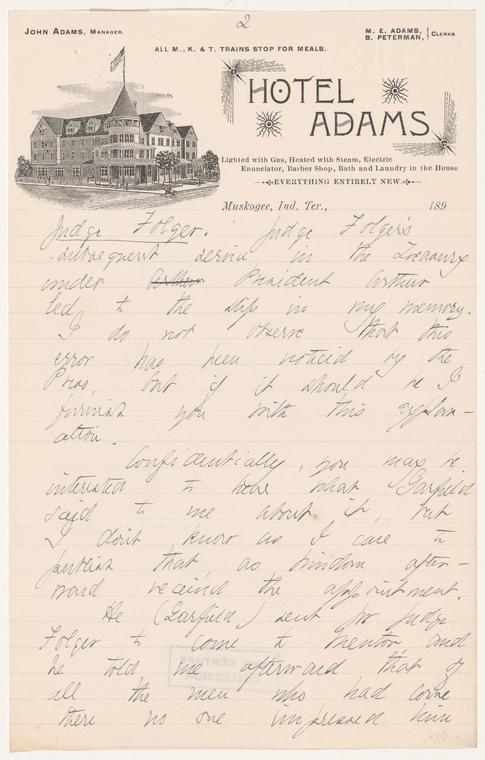 2
JOHN ADAMS, MANAGER.
M. E. ADAMS,
B. PETERMAN, } CLERKS
ALL M., K. & T. TRAINS STOP FOR MEALS.
HOTEL
ADAMS
Lighted with Gas, Heated with Steam, Electric
Enunciator, Barber Shop, Bath and Laundry in the House
EVERYTHING ENTIRELY NEW.
Muskogee, Ind. Ter., 189
Judge Folger. Judge Folger's
subsequent service in the Treasury
under Arthur President Arthur
led to the slip in my memory.
I do not observe that this
error has been noticed by the
Press, but if it should be I
furnish you with this explan-
ation.
Confidentially, you may be
interested to hear what Garfield
said to me about it, but
I don't know as I care to
publish that, as Windom after-
ward received the appointment.
He (Garfield) sent for Judge
Folger to come to Mentor and
he told me afterward that of
all the men who had come
there no one impressed him